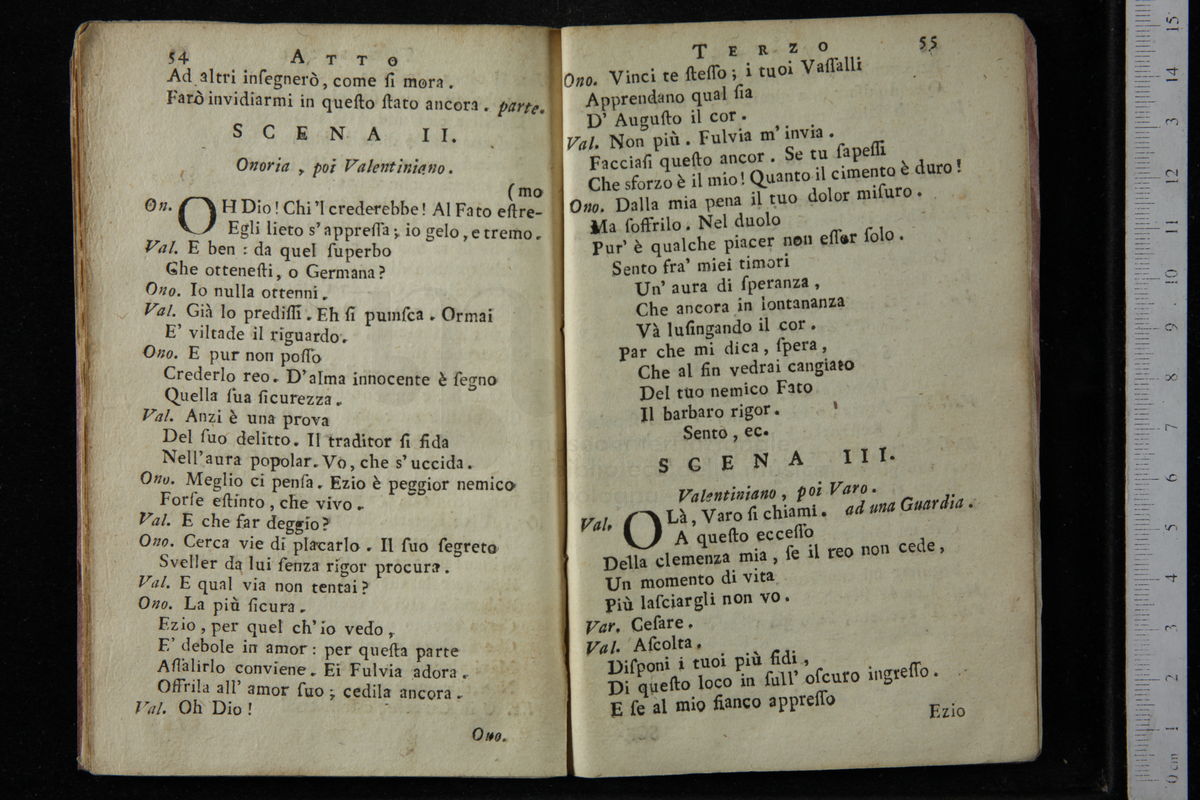 54 ATTO
Ad altri inſegnerò, come ſi mora.
Farò invidiarmi in queſto ſtato ancora. parte.
SCENA II.
Onoria, poi Valentiniano.
(mo
On. OH Dio! Chi 'l crederebbe! Al Fato eſtre-
Egli lieto s'appreſſa; io gelo, e tremo.
Val. E ben: da quel ſuperbo
Che otteneſti, o Germana?
Ono. Io nulla ottenni.
Val. Già lo prediſſi. Eh ſi puniſca. Ormai
E' viltade il riguardo.
Ono. E pur non poſſo
Crederlo reo. D'alma innocente è ſegno
Quella ſua ſicurezza.
Val. Anzi è una prova
Del ſuo delitto. Il traditor ſi fida
Nell'aura popolar. Vo, che s'uccida.
Ono. Meglio ci penſa. Ezio è peggior nemico
Forſe eſtinto, che vivo.
Val. E che far deggio?
Ono. Cerca vie di placarlo. Il ſuo ſegreto
Sveller da lui ſenza rigor procura.
Val. E qual via non tentai?
Ono. La più ſicura.
Ezio, per quel ch'io vedo,
E' debole in amor: per queſta parte
Aſſalirlo conviene. Ei Fulvia adora.
Offrila all' amor ſuo; cedila ancora.
Val. Oh Dio!
Ono.
TERZO 55
Ono. Vinci te ſteſſo; i tuoi Vaſſalli
Apprendano qual ſia
D' Auguſto il cor.
Val. Non più. Fulvia m' invia.
Facciaſi queſto ancor. Se tu ſapeſſi
Che sforzo è il mio! Quanto il cimento è duro!
Ono. Dalla mia pena il tuo dolor miſuro.
Ma ſoffrilo. Nel duolo
Pur' è qualche piacer non eſſer ſolo.
Sento fra' miei timori
Un' aura di ſperanza,
Che ancora in lontananza
Và luſingando il cor.
Par che mi dica, ſpera,
Che al fin vedrai cangiato
Del tuo nemico Fato
Il barbaro rigor.
Sento, ec.
SCENA III.
Valentiniano, poi Varo.
Val. OLà, Varo ſi chiami. ad una Guardia.
A queſto ecceſſo
Della clemenza mia, ſe il reo non cede,
Un momento di vita
Più laſciargli non vo.
Var. Ceſare.
Val. Aſcolta.
Diſponi i tuoi più fidi,
Di queſto loco in ſull' oſcuro ingreſſo.
E ſe al mio fianco appreſſo
Ezio
0 cm 1 2 3 4 5 6 7 8 9 10 11 12 13 14 15